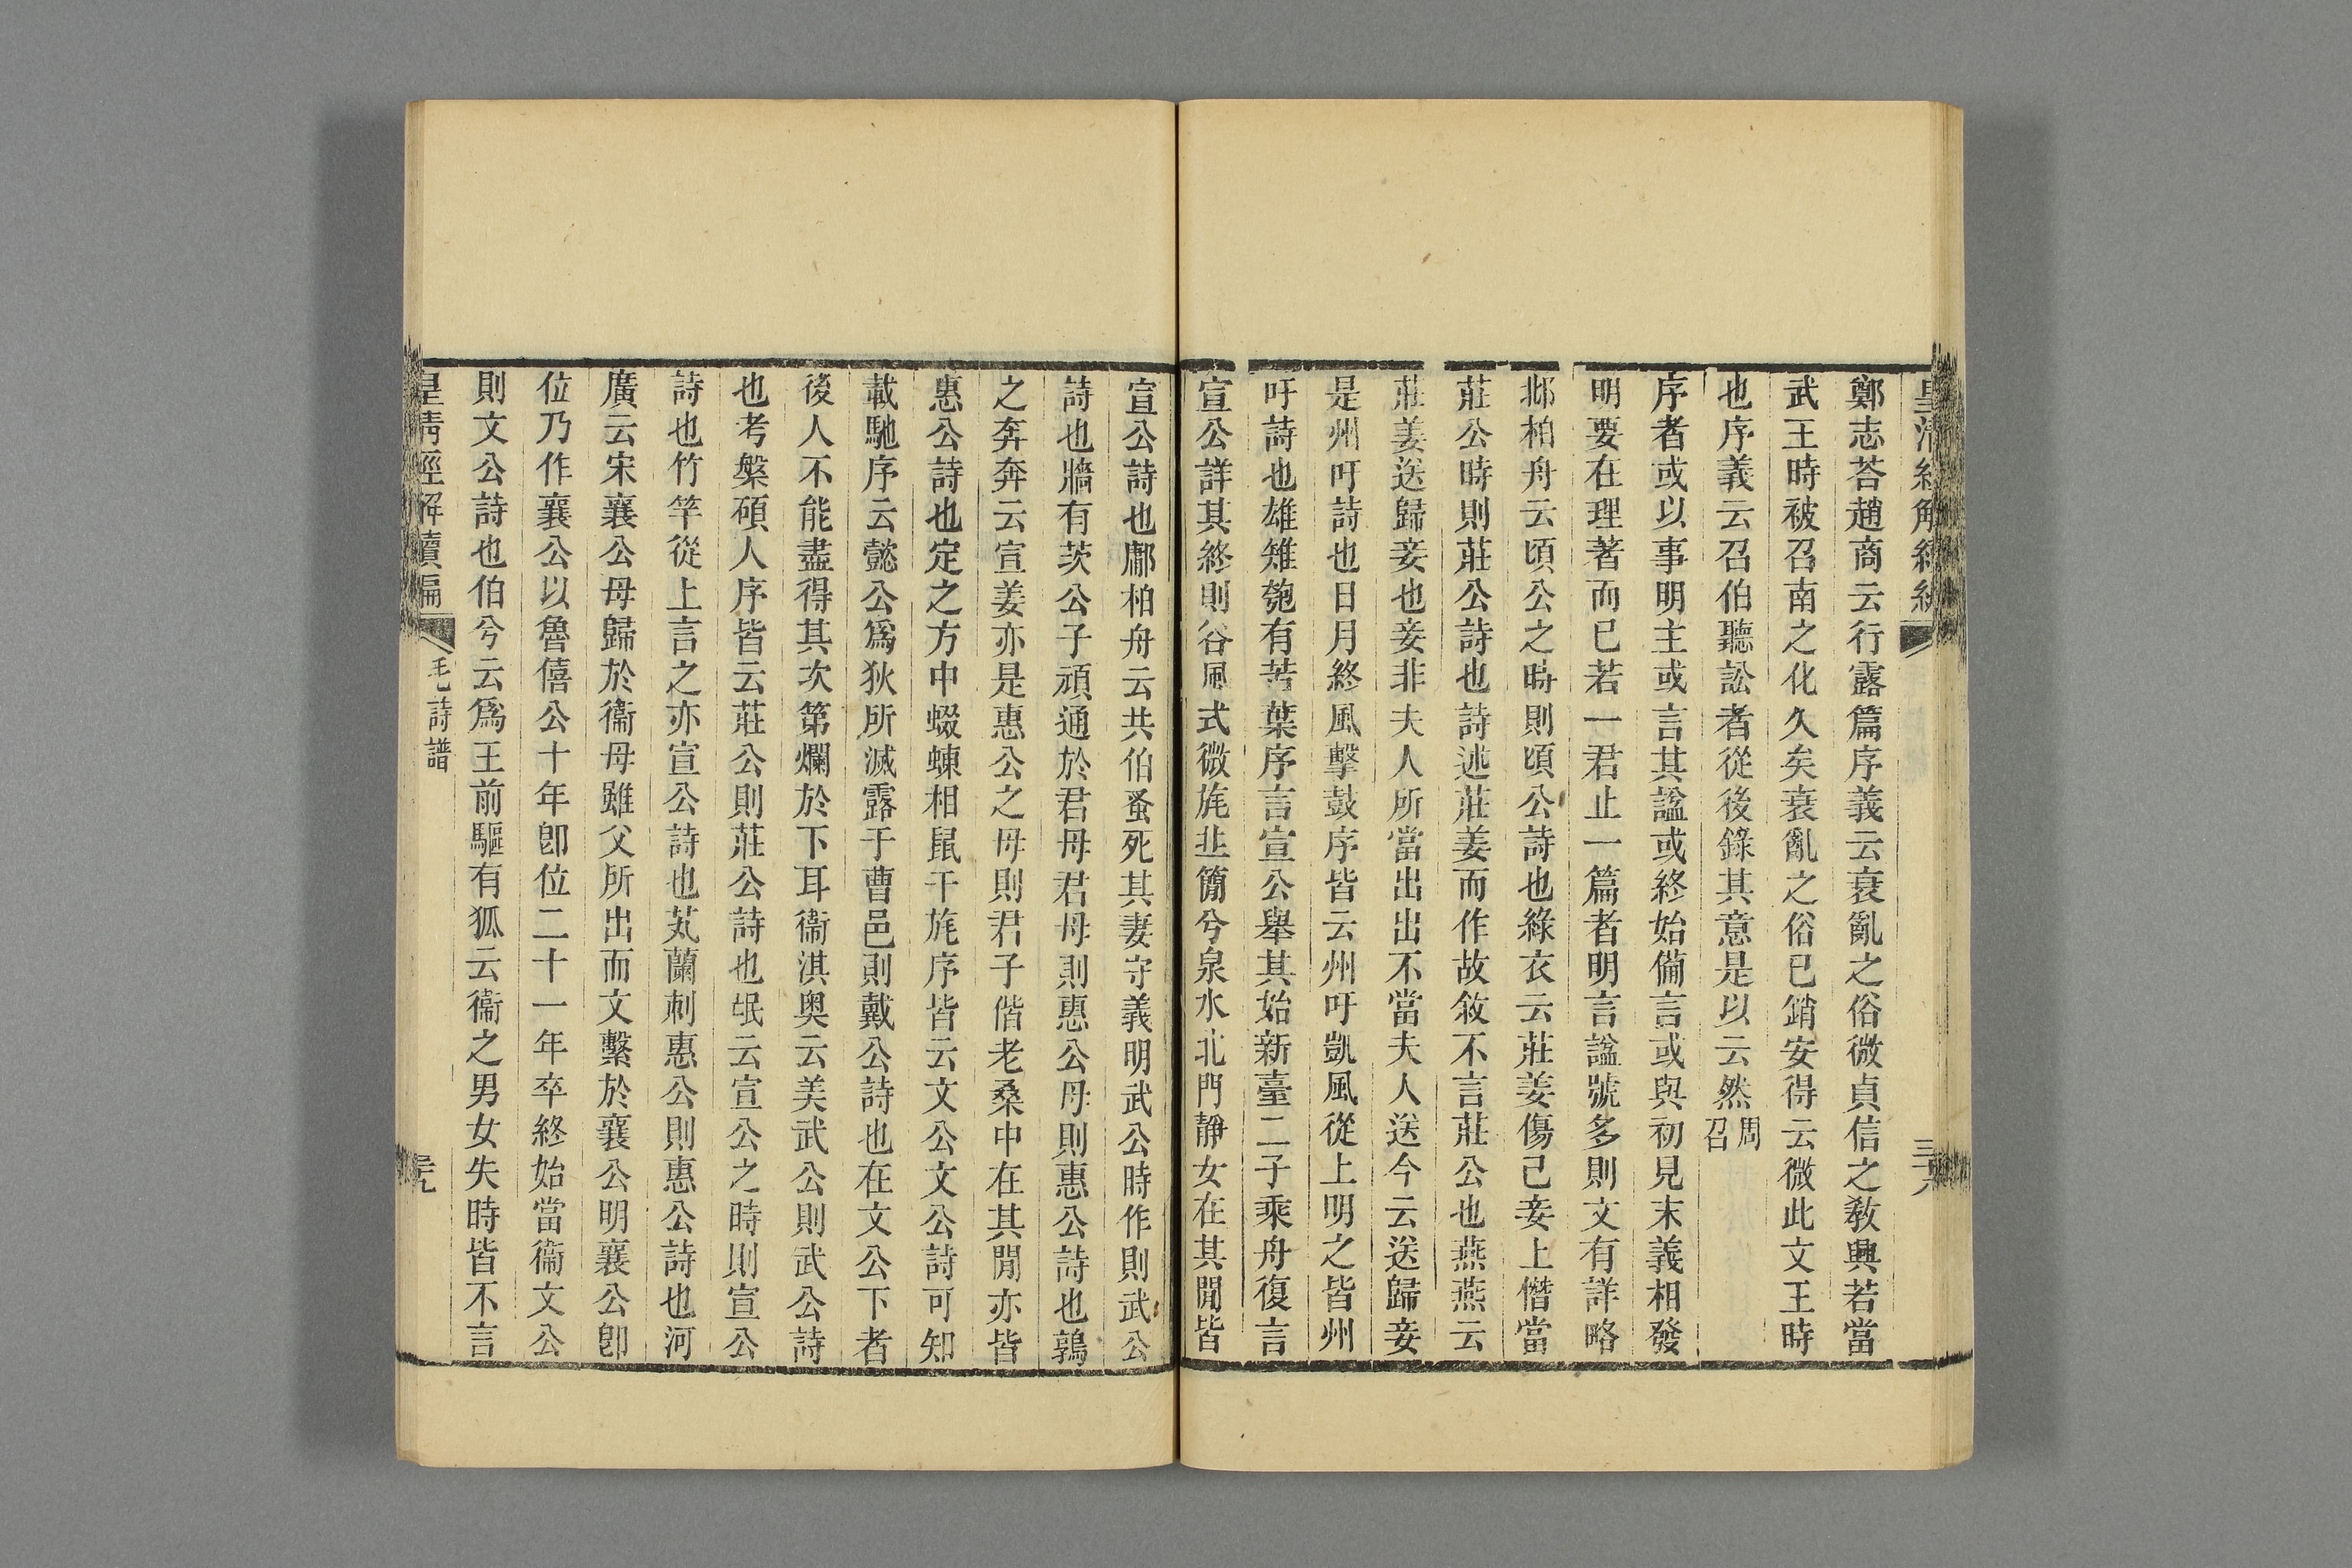 鄭志荅趙商云行露篇序義云衰亂之俗微貞信之敎興若當
武王時被召南之化久矣衰亂之俗已銷安得云微此文王時
也序義云召伯聽訟者從後錄其意是以云然周召
序者或以事明主或言其諡或終始備言或與初見末義相發
明要在理著而已若一君止一篇者明言諡號多則文有詳略
邶柏舟云頃公之時則頃公詩也綠衣云莊姜傷己妾上僭當
莊公時則莊公詩也詩述莊姜而作故敘不言莊公也燕燕云
莊姜送歸妾也妾非夫人所當出出不當夫人送今云送歸妾
是州吁詩也日月終風擊鼓序皆云州吁凱風從上明之皆州
吁詩也雄雉匏有苦葉序言宣公舉其始新臺二子乘舟復言
宣公詳其終則谷風式微旄丘簡兮泉水北門靜女在其閒皆
宣公詩也鄘柏舟云共伯蚤死其妻守義明武公時作則武公
詩也牆有茨公子頑通於君母君母則惠公母則惠公詩也鶉
之奔奔云宣姜亦是惠公之母則君子偕老桑中在其閒亦皆
惠公詩也定之方中蝃蝀相鼠干旄序皆云文公文公詩可知
載馳序云懿公爲狄所滅露于曹邑則戴公詩也在文公下者
後人不能盡得其次第爛於下耳衞淇奧云美武公則武公詩
也考槃碩人序皆云莊公則莊公詩也氓云宣公之時則宣公
詩也竹竿從上言之亦宣公詩也芄蘭刺惠公則惠公詩也河
廣云宋襄公母歸於衞母雖父所出而文繫於襄公明襄公卽
位乃作襄公以魯僖公十年卽位二十一年卒終始當衞文公
則文公詩也伯兮云爲王前驅有狐云衞之男女失時皆不言
皇淸經解續編
毛詩譜